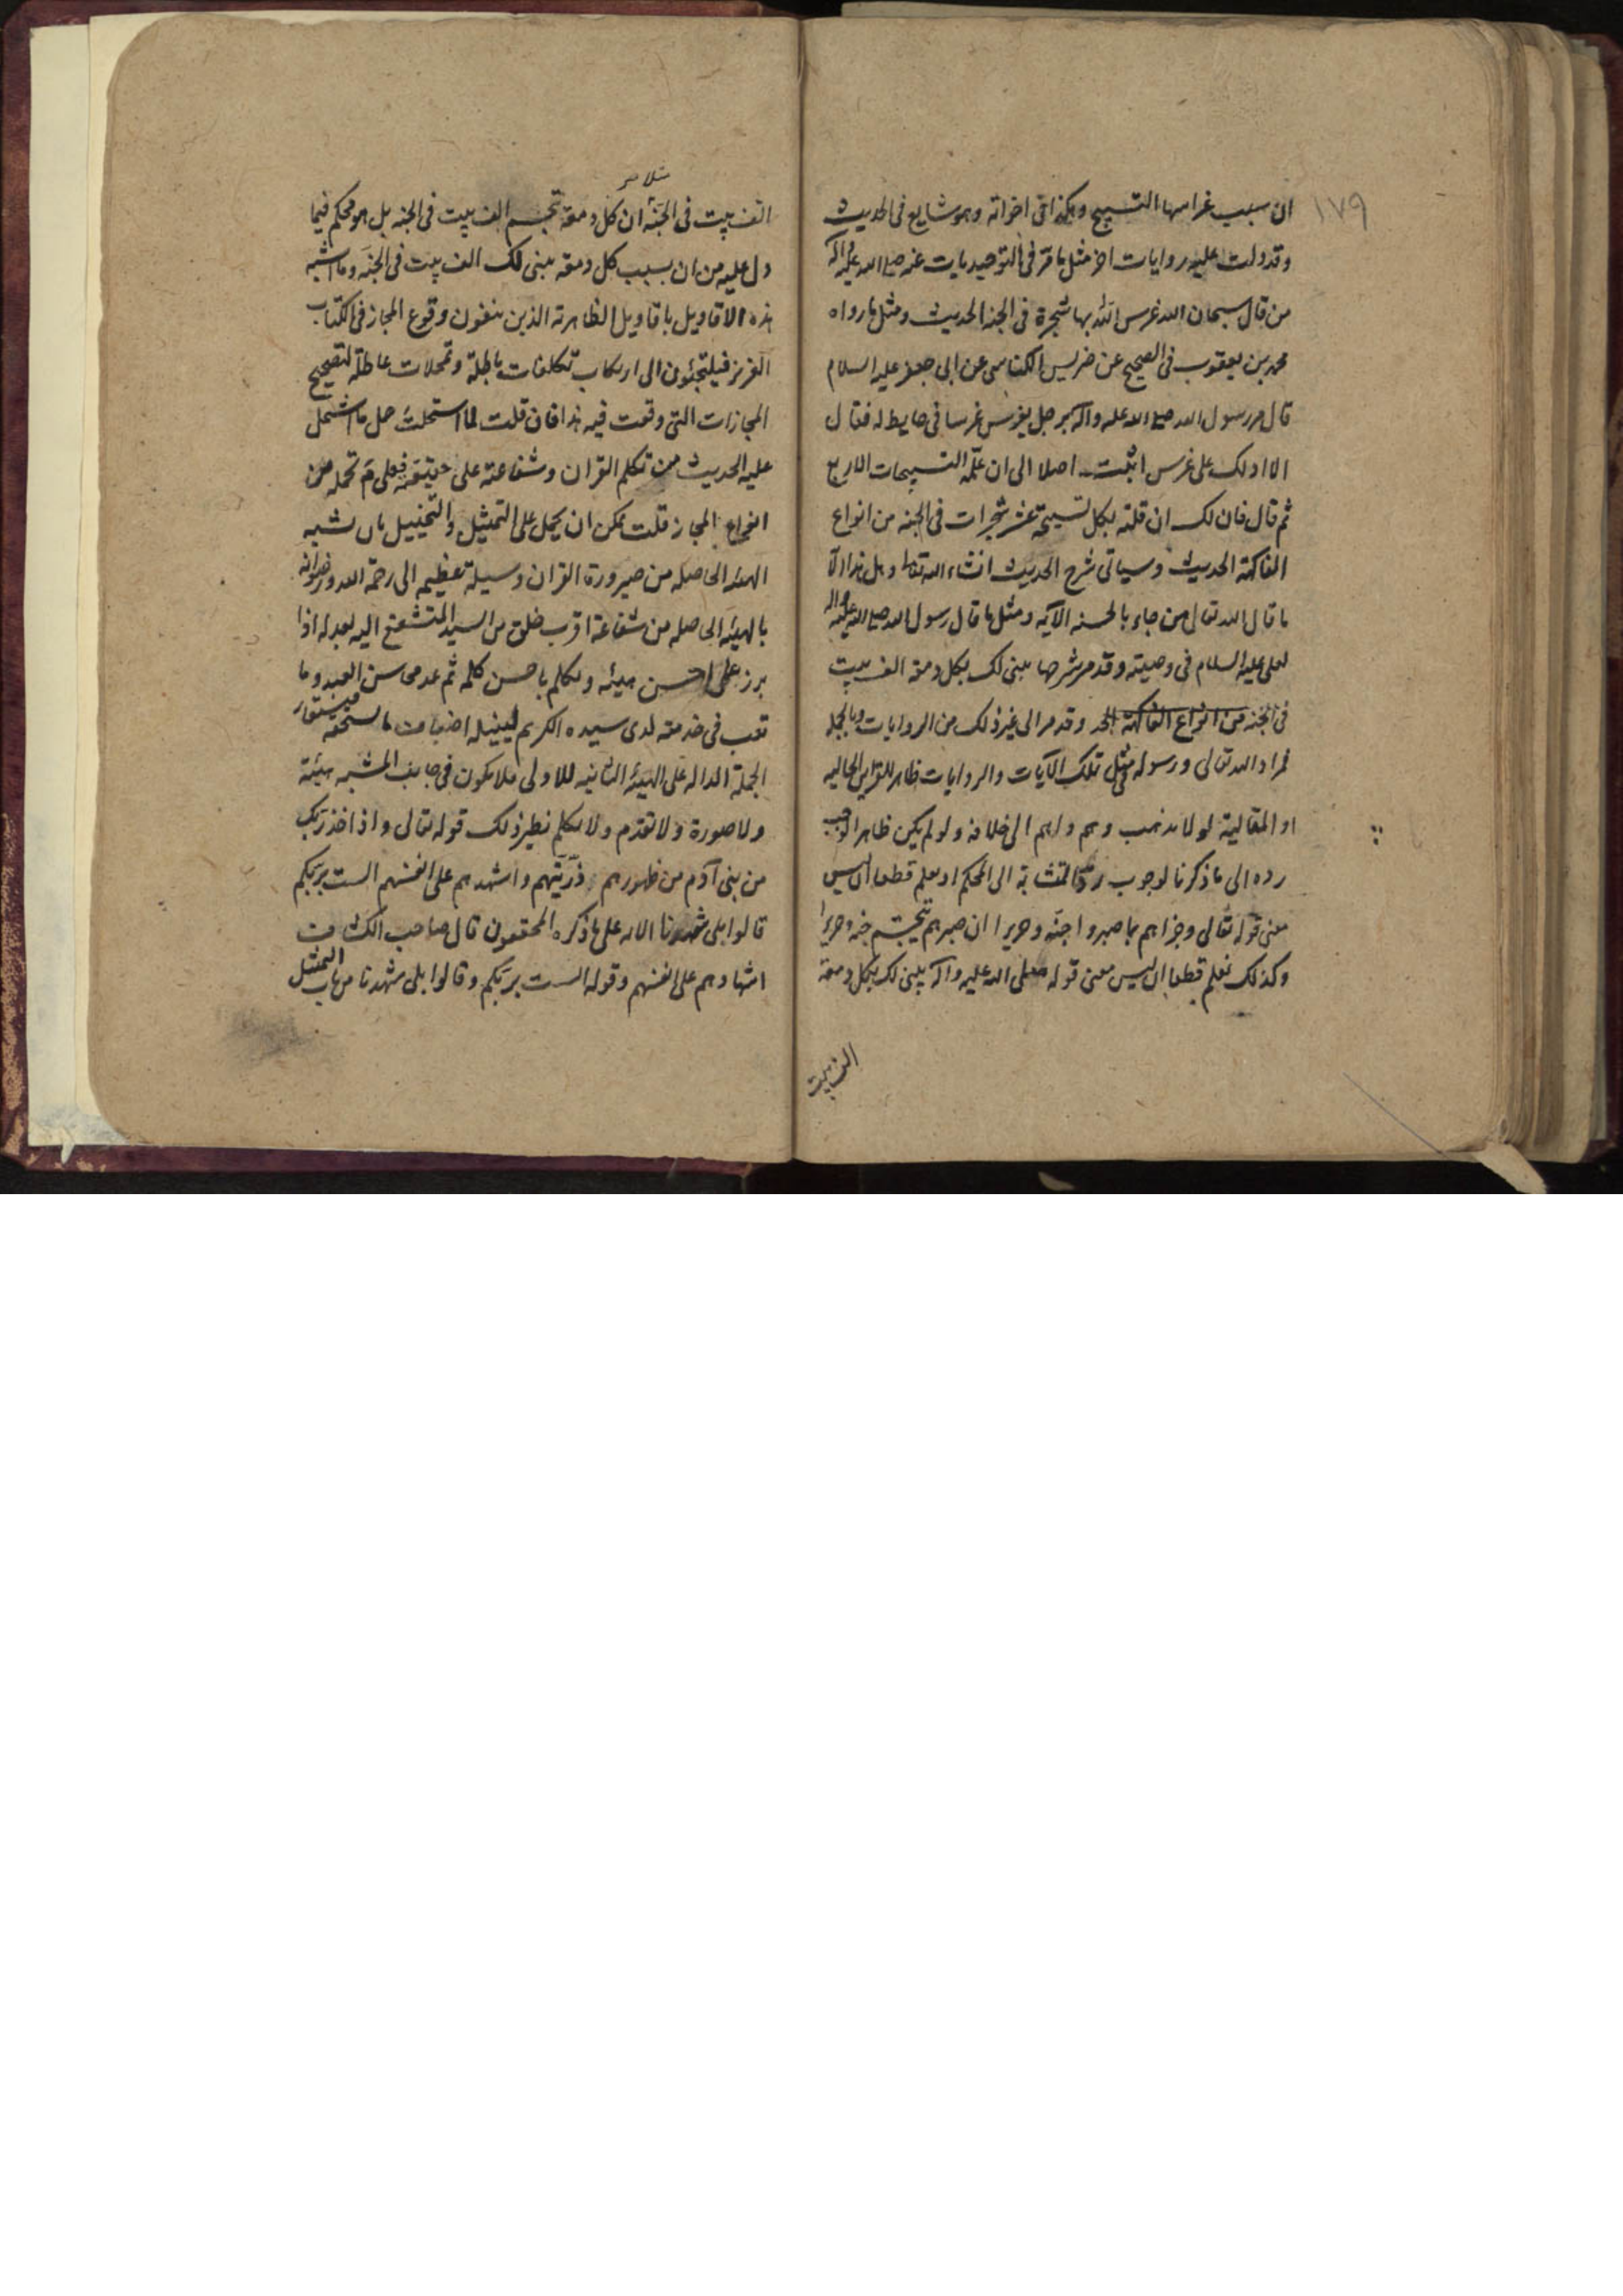 ١٧٩
ان سبب غراسها التسبيح وهكذا في اخواته وهو شايع في الحديث
وقد دلت عليه روايات اخر مثل ما مر في التوحيديات عنه صلى الله عليه واله
من قال سبحان الله غرس الله بها شجرة في الجنه الحديث ومثل ما رواه
محمد بن يعقوب في الصحيح عن ضريس الكناسى عن ابى جعفر عليه السلام
قال مر رسول الله صلى الله عليه واله برجل يغرس غرسا في حايط له فقال
الا ادلك على غرس اثبت اصلا الى ان علمه التسبيحات الاربع
ثم قال فان لك ان قلته بكل تسبيحة عشر شجرات في الجنه من انواع
الفاكهة الحديث وسياتى شرح الحديث انشاء الله تعالى وهل هذا الا
ما قال الله تعالى من جاء بالحسنه الآيه ومثل ما قال رسول الله صلى الله عليه واله
لعلى عليه السلام في وصيته وقد مر شرحها يبنى لك بكل دمعة الف بيت
في الجنه من انواع الفاكهة وقد مر الى غير ذلك من الروايات وبالجملة
فمراد الله تعالى ورسوله في مثل تلك الآيات والروايات ظاهر للقراين الحاليه
او المقالية لولا يذهب وهم واهم الى خلافه ولو لم يكن ظاهرا لوجب
رده الى ما ذكرنا لوجوب رد المتشابه الى المحكم او يعلم قطعا ان ليس
معنى قوله تعالى وجزاهم بما صبروا جنة وحريرا ان صبرهم يتجسم جنه وحريرا
وكذلك نعلم قطعا ان ليس معنى قوله صلى الله عليه واله يبنى لك بكل دمعة
الف بيت
الف بيت في الجنة ان كل دمعة تجسم الف بيت في الجنه بل هو محكم فيما
دل عليه من ان بسبب كل دمعة يبنى لك الف بيت في الجنة وما اشبه
هذه الاقاويل باقاويل الظاهرية الذين ينفون وقوع المجاز في الكتاب
العزيز فيلتجئون الى ارتكاب تكلفات باطلة وتمحلات عاطلة لتصحيح
المجازات التى وقعت فيه هذا فان قلت لما استحلت حمل ما اشتمل
عليه الحديث من تكلم القران وشفاعته على حقيقته فعلى م تحمله من
انواع المجاز قلت يمكن ان يحمل على التمثيل والتخييل بان يشبه
الهيئه الحاصله من صيرورة القران وسيلة عظيمه الى رحمة الله ورضوانه
بالهيئه الحاصله من شفاعة اقرب خلق من السيد المتشفع اليه لعبد له اذا
برز على احسن هيئه وتكلم باحسن كلمه ثم عد محاسن العبد وما
تعب في خدمته لدى سيده الكريم لينيله اضعاف ما يستحقه فيستعار
الجملة الداله على الهيئه الثانيه للاولى فلا يكون في جانب المشبه هيئة
ولا صورة ولا تقدم ولا تكلم نظير ذلك قوله تعالى واذ اخذ ربك
من بنى آدم من ظهورهم ذريتهم واشهدهم على انفسهم الست بربكم
قالوا بلى شهدنا الايه على ما ذكره المحققون قال صاحب الكشاف
اشهادهم على انفسهم وقوله الست بربكم وقالوا بلى شهدنا من باب التمثيل